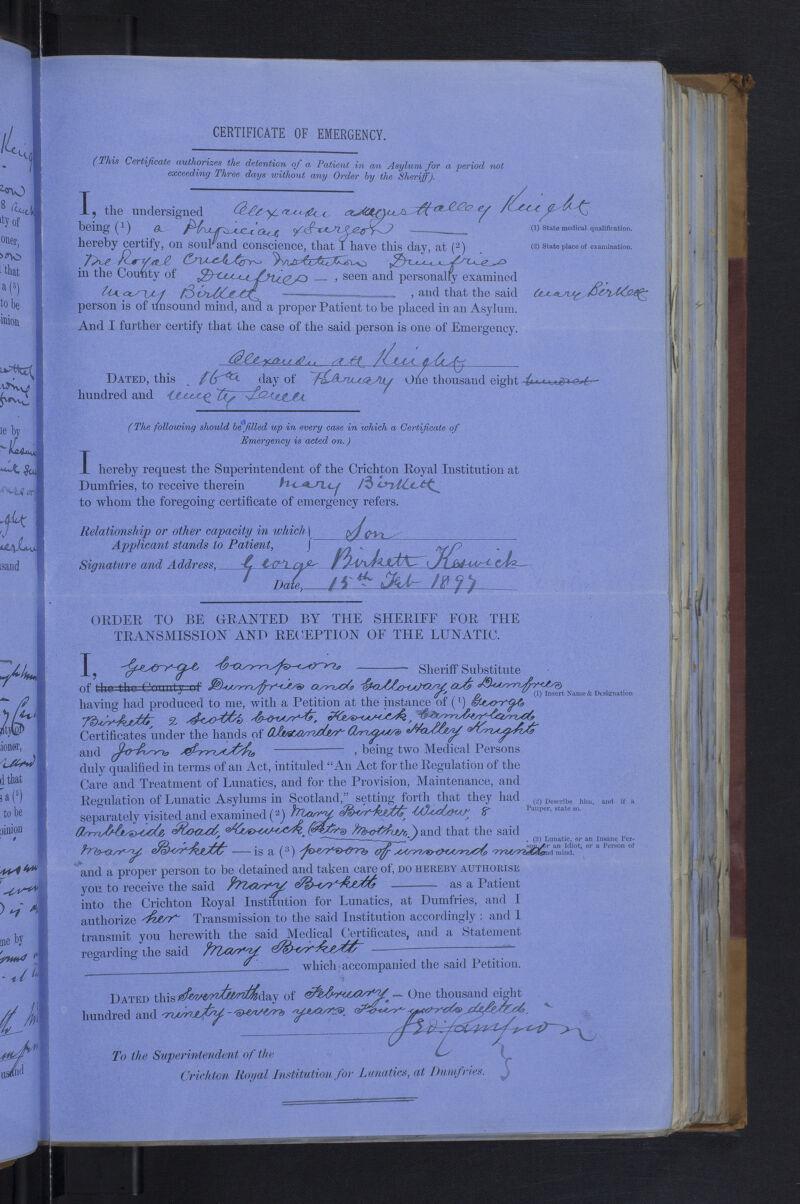 CERTIFICATE OF EMERGENCY.
(This Certificate authorizes the detention of a Patient in an Asylum for a period not
exceeding Three days without any Order by the Sheriff).
I, the undersigned Alexander Angus Halley Knight
being (1) a Physician & Surgeon
(1) State medical qualification.
hereby certify, on soul and conscience, that I have this day, at (2)
(2) State place of examination.
The Royal Crichton Institution Dumfries
in the County of Dumfries — , seen and personally examined
Mary Birkett , and that the said Mary Birkett
person is of unsound mind, and a proper Patient to be placed in an Asylum.
And I further certify that the case of the said person is one of Emergency.
Alexander A H Knight
DATED, this 16th day of February One thousand eight hundred
hundred and ninety seven
(The following should be filled up in every case in which a Certificate of
Emergency is acted on.)
I hereby request the Superintendent of the Crichton Royal Institution at
Dumfries, to receive therein Mary Birkett
to whom the foregoing certificate of emergency refers.
Relationship or other capacity in which
Applicant stands to Patient, } Son
Signature and Address, George Birkett Keswick
Date, 15th Feb 1897
ORDER TO BE GRANTED BY THE SHERIFF FOR THE
TRANSMISSION AND RECEPTION OF THE LUNATIC.
I, George Campion —— Sheriff Substitute
of the the County of Dumfries and Galloway at Dumfries
(1) Insert Name & Designation
having had produced to me, with a Petition at the instance of (1) George
Birkett, 2 Scotts Court, Keswick, Cumberland,
Certificates under the hands of Alexander Angus Halley Knight
and John Smith —— , being two Medical Persons
duly qualified in terms of an Act, intituled “An Act for the Regulation of the
Care and Treatment of Lunatics, and for the Provision, Maintenance, and
Regulation of Lunatic Asylums in Scotland,” setting forth that they had
(2) Describe him, and if a
Pauper, state so.
separately visited and examined (2) Mary Birkett, Widow, 8
Ambleside Road, Keswick, (Ptrs Mother,) and that the said
(3) Lunatic, or an Insane Per-
son, or an Idiot, or a Person of
unsound mind.
Mary Birkett — is a (3) person of unsound mind
and a proper person to be detained and taken care of, DO HEREBY AUTHORISE
you to receive the said Mary Birkett —— as a Patient
into the Crichton Royal Institution for Lunatics, at Dumfries, and I
authorize her Transmission to the said Institution accordingly : and I
transmit you herewith the said Medical Certificates, and a Statement
regarding the said Mary Birkett
which accompanied the said Petition.
DATED this Seventeenth day of February — One thousand eight
hundred and ninety-seven years. Four words deleted.
Geo. Campion
To the Superintendent of the
Crichton Royal Institution for Lunatics, at Dumfries.